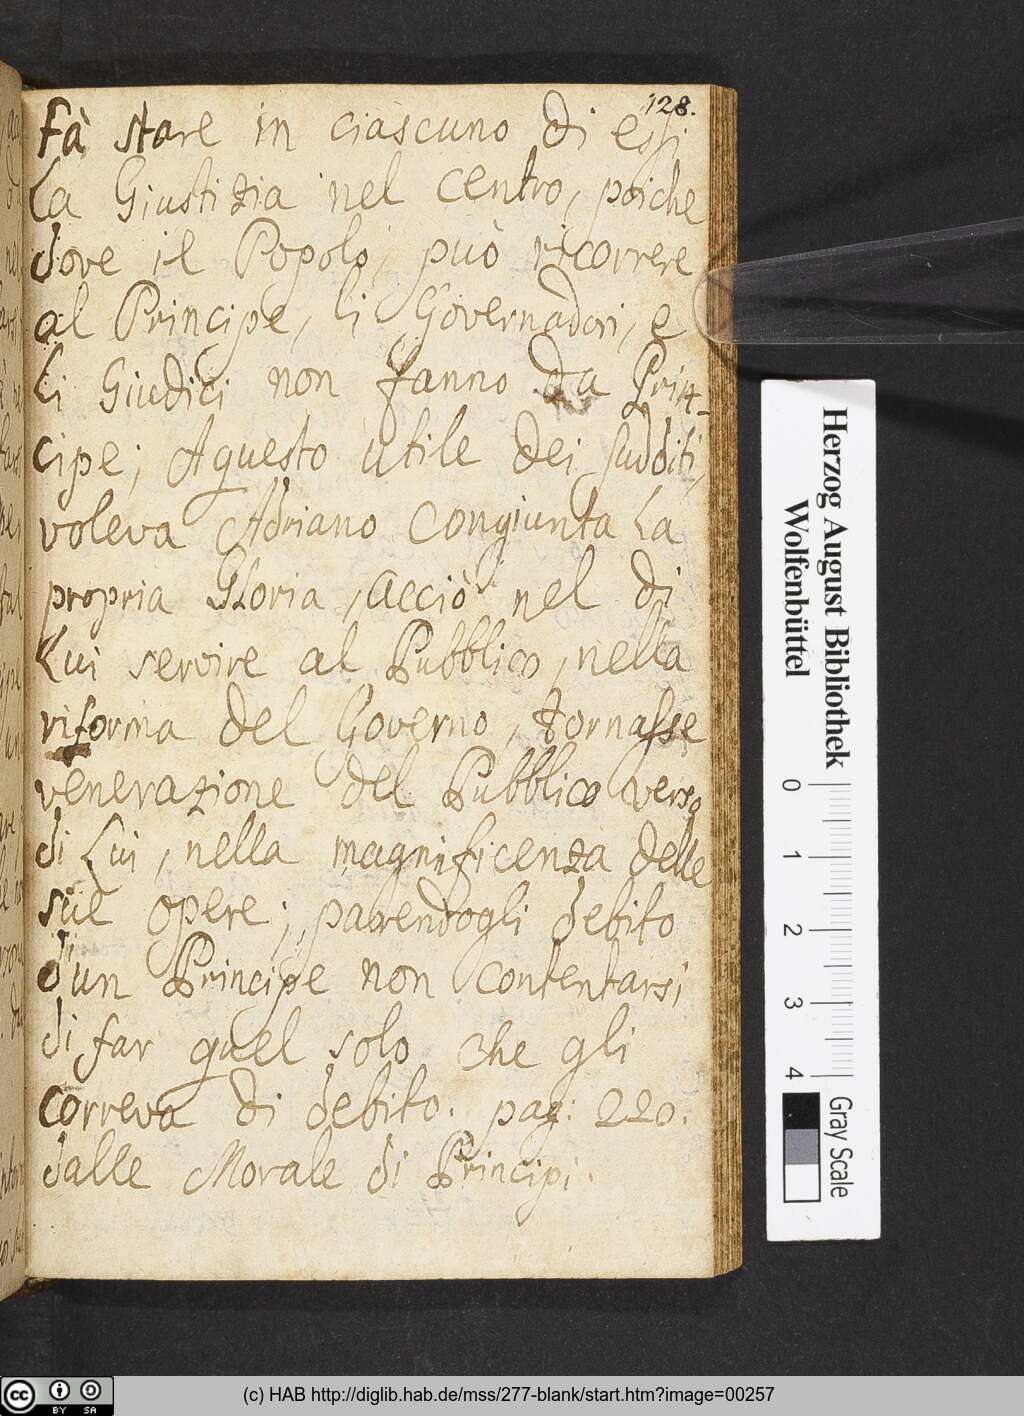 128.
Fà stare in ciascuno di essi
La Giustizia nel centro, poiche
dove il Popolo, può ricorrere
al Principe, li Governadori, e
Li Giudici non fanno da Prin-
cipe; Aquesto utile dei sudditi,
voleva Adriano congiunta La
propria Gloria, acciò nel di
Lui servire al Pubblico, nella
riforma del Governo, tornasse
venerazione del Pubblico verso
di Lui, nella magnificenza delle
sue opere; parendogli debito
d'un Principe non contentarsi
di far quel solo che gli
correva di debito. pag: 220.
dalle Morale di Principi.
Herzog August Bibliothek
Wolfenbüttel
0 1 2 3 4
Gray Scale
cc BY SA
(c) HAB http://diglib.hab.de/mss/277-blank/start.htm?image=00257